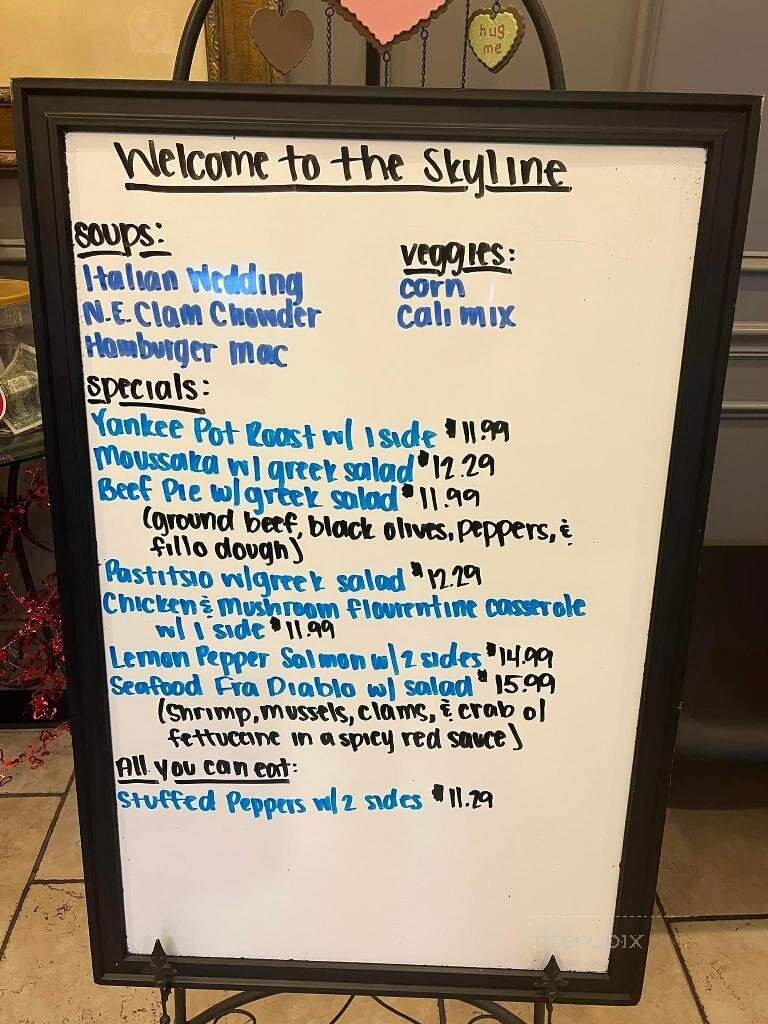 hug
me
Welcome to the Skyline
soups:
Italian Wedding
N.E. Clam Chowder
Hamburger mac
veggies:
corn
cali mix
specials:
Yankee Pot Roast w/ 1 side $11.99
Moussaka w/ greek salad $12.29
Beef Pie w/ greek salad $11.99
(ground beef, black olives, peppers, &
fillo dough)
Pastitsio w/ greek salad $12.29
Chicken & mushroom flourentine casserole
w/ 1 side $11.99
Lemon Pepper Salmon w/ 2 sides $14.99
Seafood Fra Diablo w/ salad $15.99
(shrimp, mussels, clams, & crab o/
fettuccine in a spicy red sauce)
All you can eat:
Stuffed Peppers w/ 2 sides $11.29
menupix